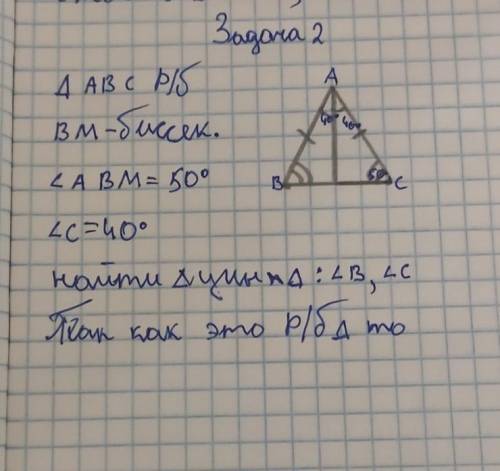 Задача 2
Δ ABC р/б
BM - биссек.
∠ABM = 50°
∠C = 40°
найти : ∠B, ∠C
Так как это р/б Δ то
A
40° 40°
B
50°
C